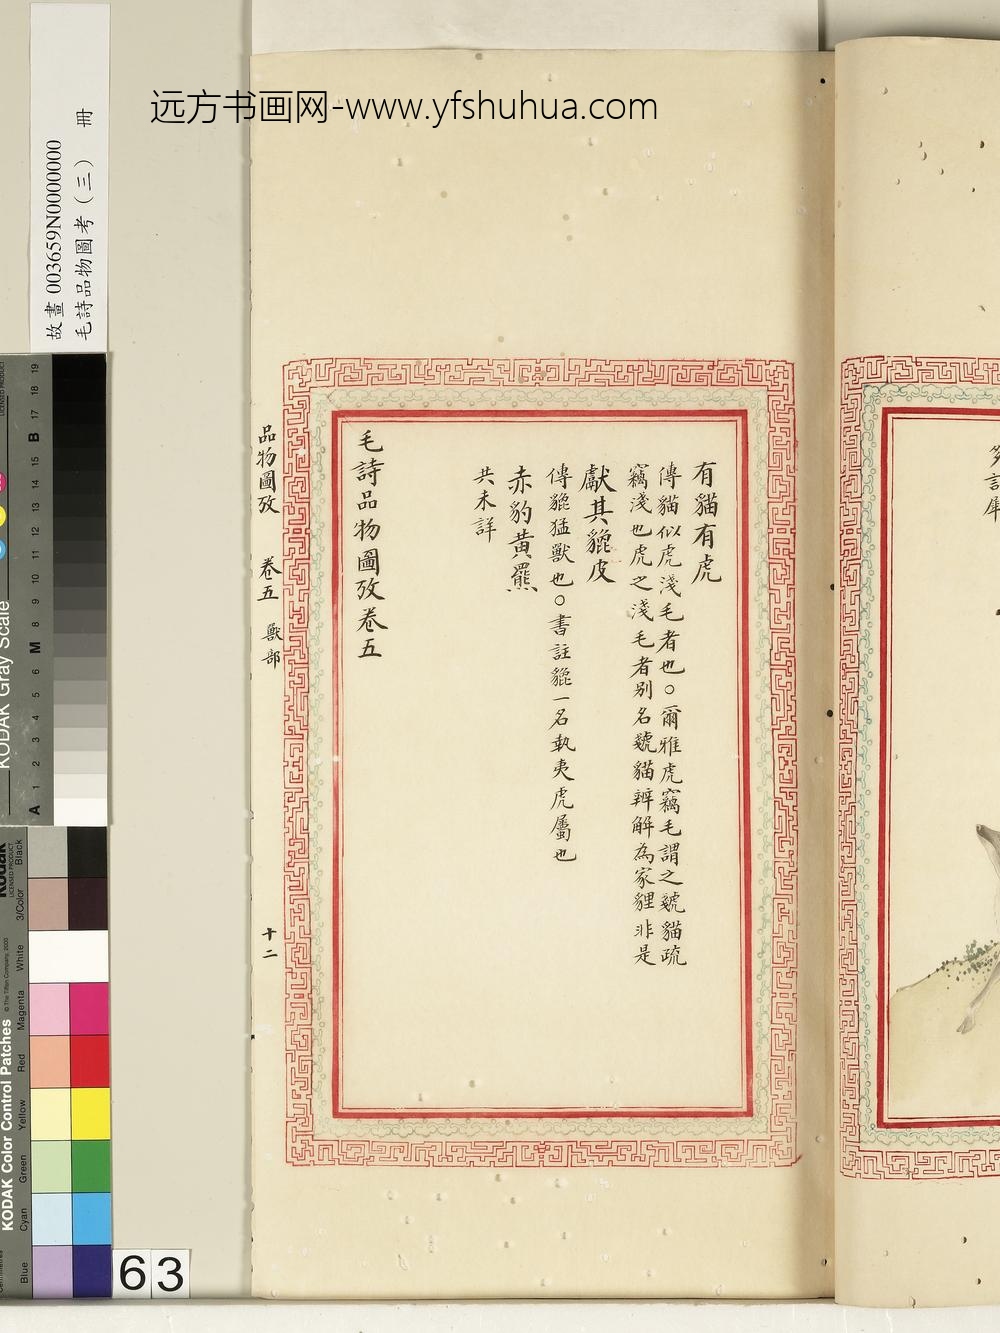 远方书画网-www.yfshuhua.com
故畫003659N0000000
毛詩品物圖考（三） 冊
有貓有虎
傳貓似虎淺毛者也○爾雅虎竊毛謂之虦貓疏
竊淺也虎之淺毛者别名虦貓辨解為家貍非是
獻其貔皮
傳貔猛獸也○書註貔一名執夷虎屬也
赤豹黃羆
共未詳
毛詩品物圖攷卷五
品物圖攷 卷五 獸部 十二
KODAK Gray Scale
A 1 2 3 4 5 6 M 8 9 10 11 12 13 14 15 B 17 18 19
Kodak
LICENSED PRODUCT
KODAK Color Control Patches
© The Tiffen Company, 2000
Blue Cyan Green Yellow Red Magenta White 3/Color Black
63